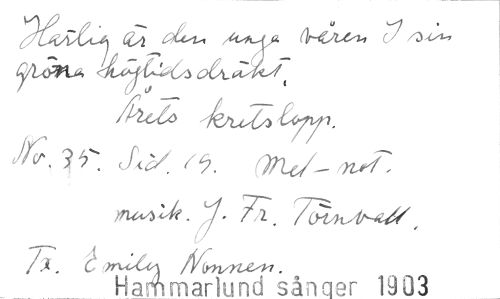 Harlig är den unga våren I sin
gröna högtidsdräkt.
Årets kretslopp.
No. 35. Sid. 19. Mel-not.
musik. J. Fr. Törnvall.
Tx. Emily Nonnen.
Hammarlund sånger 1903